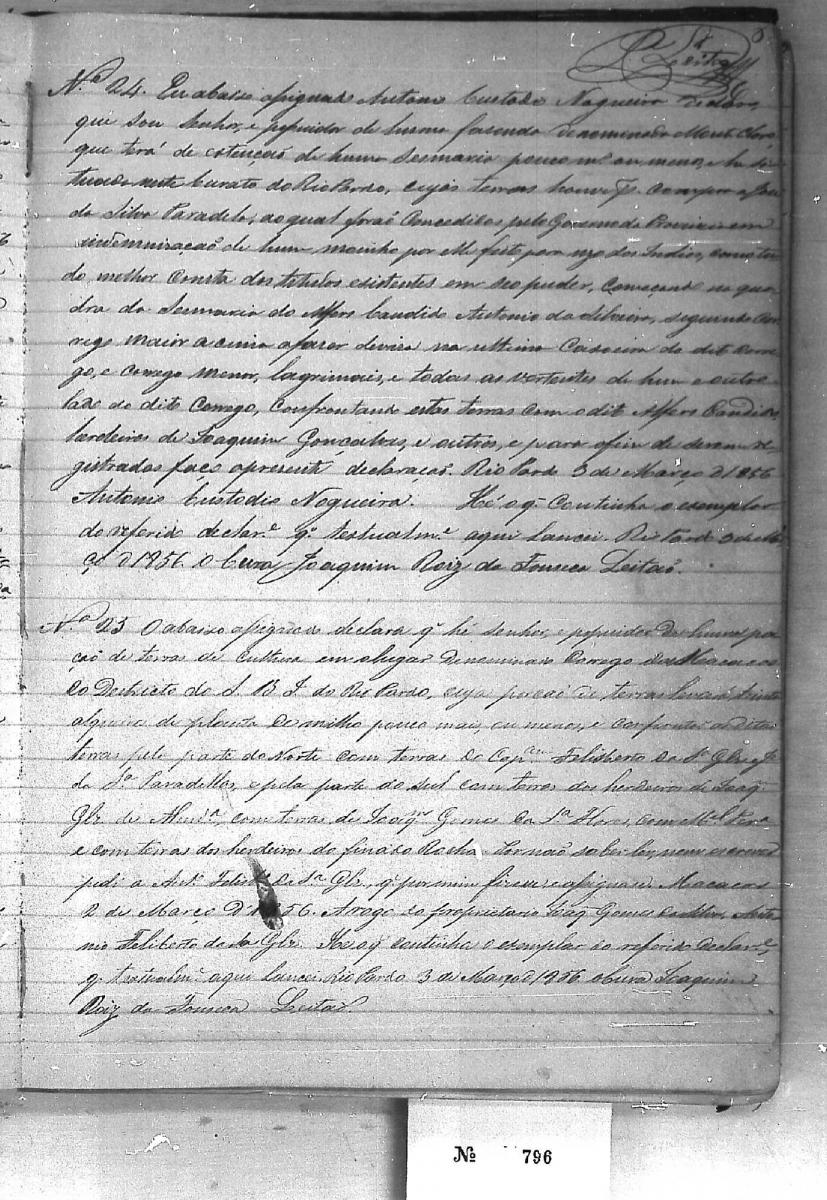 Leitão
N.º 24. Eu abaixo assignado Antonio Custodio Nogueira declaro,
que sou Senhor, e possuidor de huma fasenda denominada Monte Claro
que terá de extenção de huma Sesmaria pouco m.s ou menos, e he si-
tuada neste Curato do Rio Pardo, cujas terras houve p.r compra a
da Silva Paradela, ao qual forão Concedidas pelo Governo da Provincia em
indemnização de hum moinho por elle feito para uzo dos Indios, como tu-
do melhor Consta dos titulos existentes em seo puder, Começando na qua-
dra da Sesmaria do Alferes Candido Antonio da Silveira, seguindo Cor-
rego maior acima a faser diviza na ultima Caxoeira do dito Corre-
go, e Corrego menor, lagrimais, e todas as vertentes de hum e outro
lado do dito Corrego, Confrontando estas terras com o dito Alferes Candido,
herdeiros de Joaquim Gonçalves, e outros, e para o fim de serem re-
gistradas faço a presente declaração. Rio Pardo 3 de Março d 1856
Antonio Custodio Nogueira. Hé o q. Continha o exemplar
da referida declar.e q. textualm.e aqui lancei. Rio Pardo 3 de Mar-
ço d 1856. O Cura Joaquim Roiz da Fonseca Leitão.
N.º 25 O abaixo assignado declara q. hé senhor, e possuidor de huma por-
ção de terra de cultura em o lugar Denominado Corrego dos Macacos
do Destricto do S. B. J. do Rio Pardo, cuja porção de terras levará trinta
alqueires de planta de milho pouco mais, ou menos, e confronta as ditas
terras pela parte do Norte com terras do Cap.m Felisberto da S.a Glz e
da S.a Paradellas, e pela parte do Sul com terras dos herdeiros de Joaq.
Glz de Almd.a, com terras de Joaq.m Gomes da S.a Flores, com M.el
e com terras dos herdeiros do finado Rocha. Por não saber ler, nem escrever
pedi a Ant.o Felisb.o da S.a Glz, q. por mim fizesse e assignasse. Macacos
2 de Março D 1856. A rogo do proprietario Joaq. Gomes Anto-
nio Feliberto da S.a Glz. He o q. continha o exemplar da referida Declar.e,
q. textualm.e aqui lancei. Rio Pardo 3 de Março d 1856. O Cura Joaquim
Roiz da Fonseca Leitão.
Nº 796